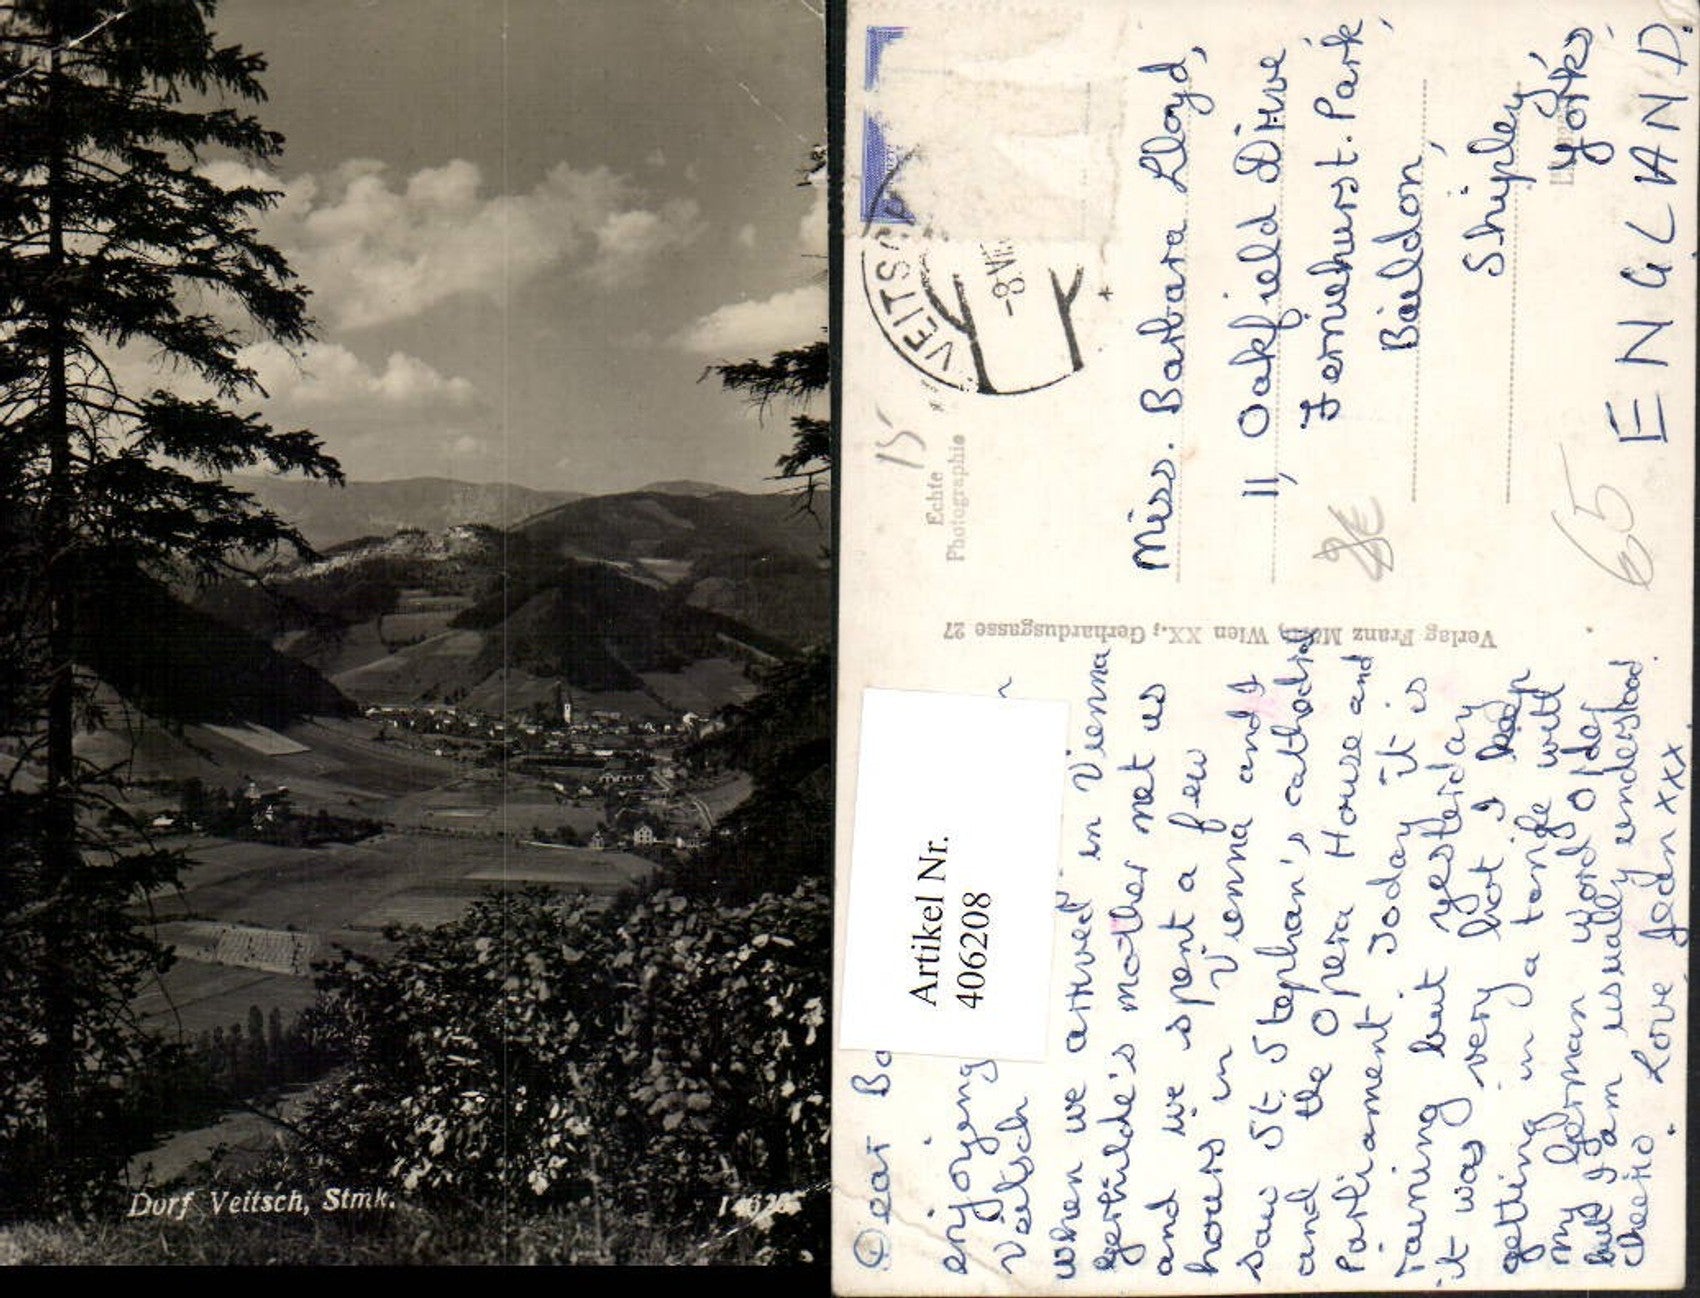 Dorf Veitsch, Stmk.
VEITSC
-8.VII
15
Echte
Photographie
Verlag Franz Wien XX., Gerhardusgasse 27
Miss. Barbara Lloyd,
11, Oakfield Drive
Ferniehurst. Park,
Baildon,
Shipley,
Yorks,
ENGLAND.
65
Artikel Nr.
406208
Dear Ba
enjoying
Veitsch
when we arrived in Vienna
Gertilde's mother met us
and we spent a few
hours in Vienna and I
saw St. Stephan's cathedral
and the Opera House and
Parliament Today it is
raining but yesterday
it was very hot I keep
getting in a tangle with
my German word order
but I am usually understood.
cheerio Love Jean xxx.